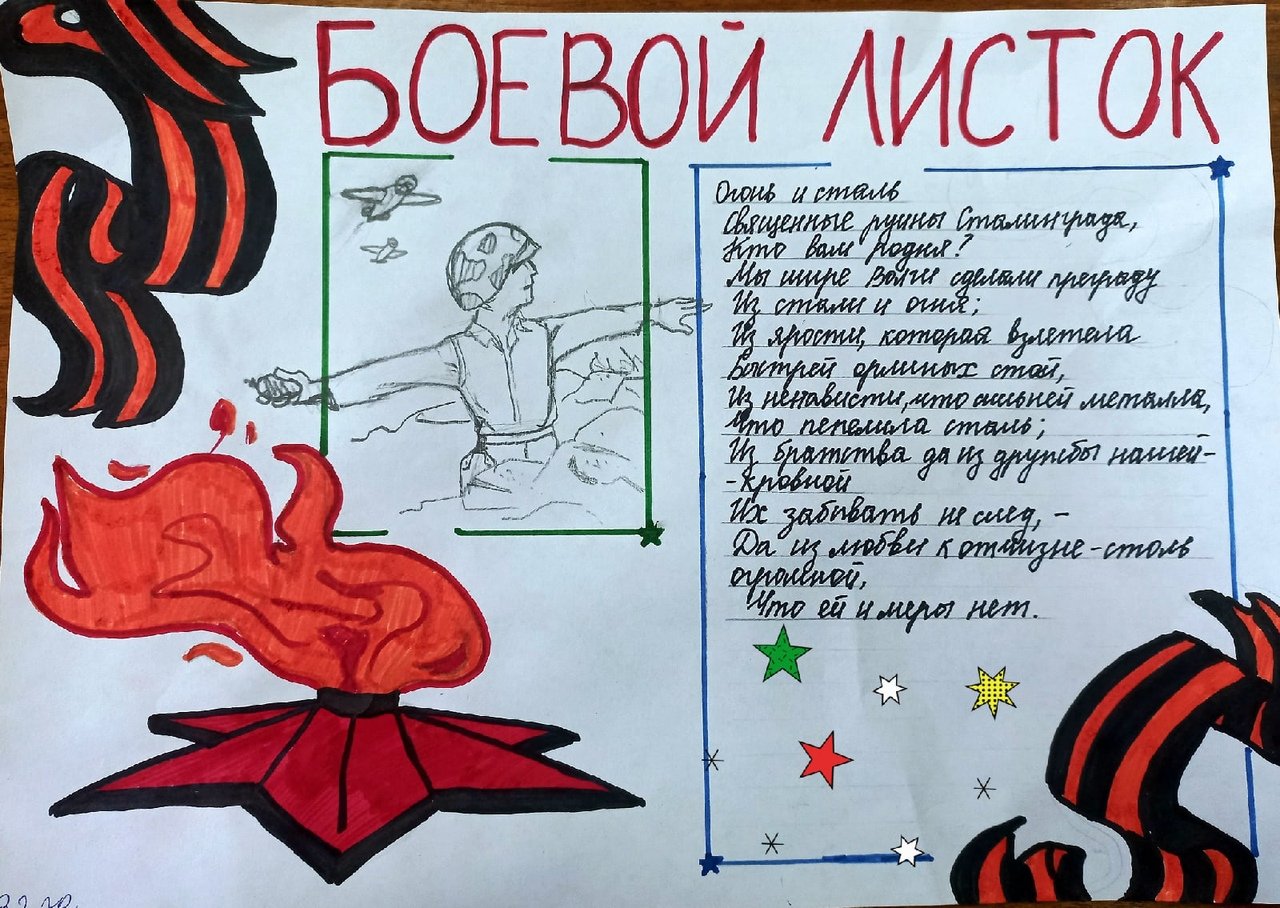 БОЕВОЙ ЛИСТОК
Огонь и сталь
Священные руины Сталинграда,
Кто вам родня?
Мы шире Волги сделали преграду
Из стали и огня;
Из ярости, которая взлетела
Быстрей орлиных стай,
Из ненависти, что сильней металла,
Что пепелила сталь;
Из братства да из дружбы нашей-
-кровной
Их забывать не след, -
Да из любви к отчизне-столь
огромной,
Что ей и меры нет.